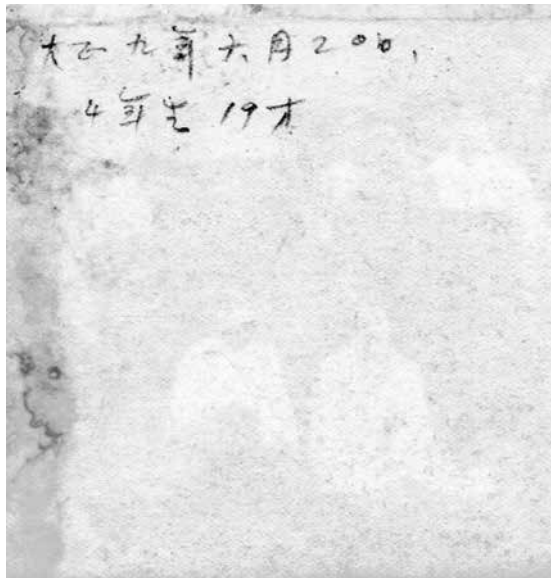 大正九年六月20日,
4年生 19才